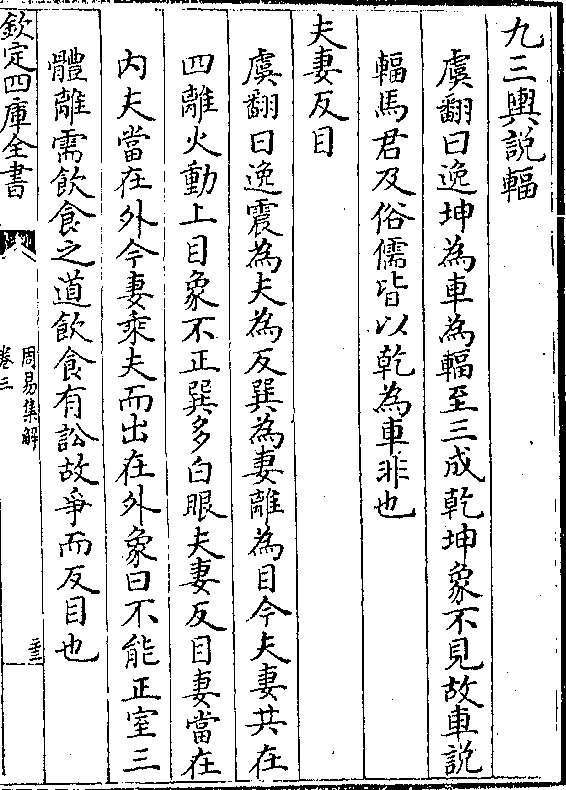 九三輿説輻
虞翻曰逸坤為車為輻至三成乾坤象不見故車説
輻馬君及俗儒皆以乾為車非也
夫妻反目
虞翻曰逸震為夫為反巽為妻離為目今夫妻共在
四離火動上目象不正巽多白眼夫妻反目妻當在
内夫當在外今妻乘夫而出在外象曰不能正室三
體離需飲食之道飲食有訟故爭而反目也
欽定四庫全書
周易集解
卷三